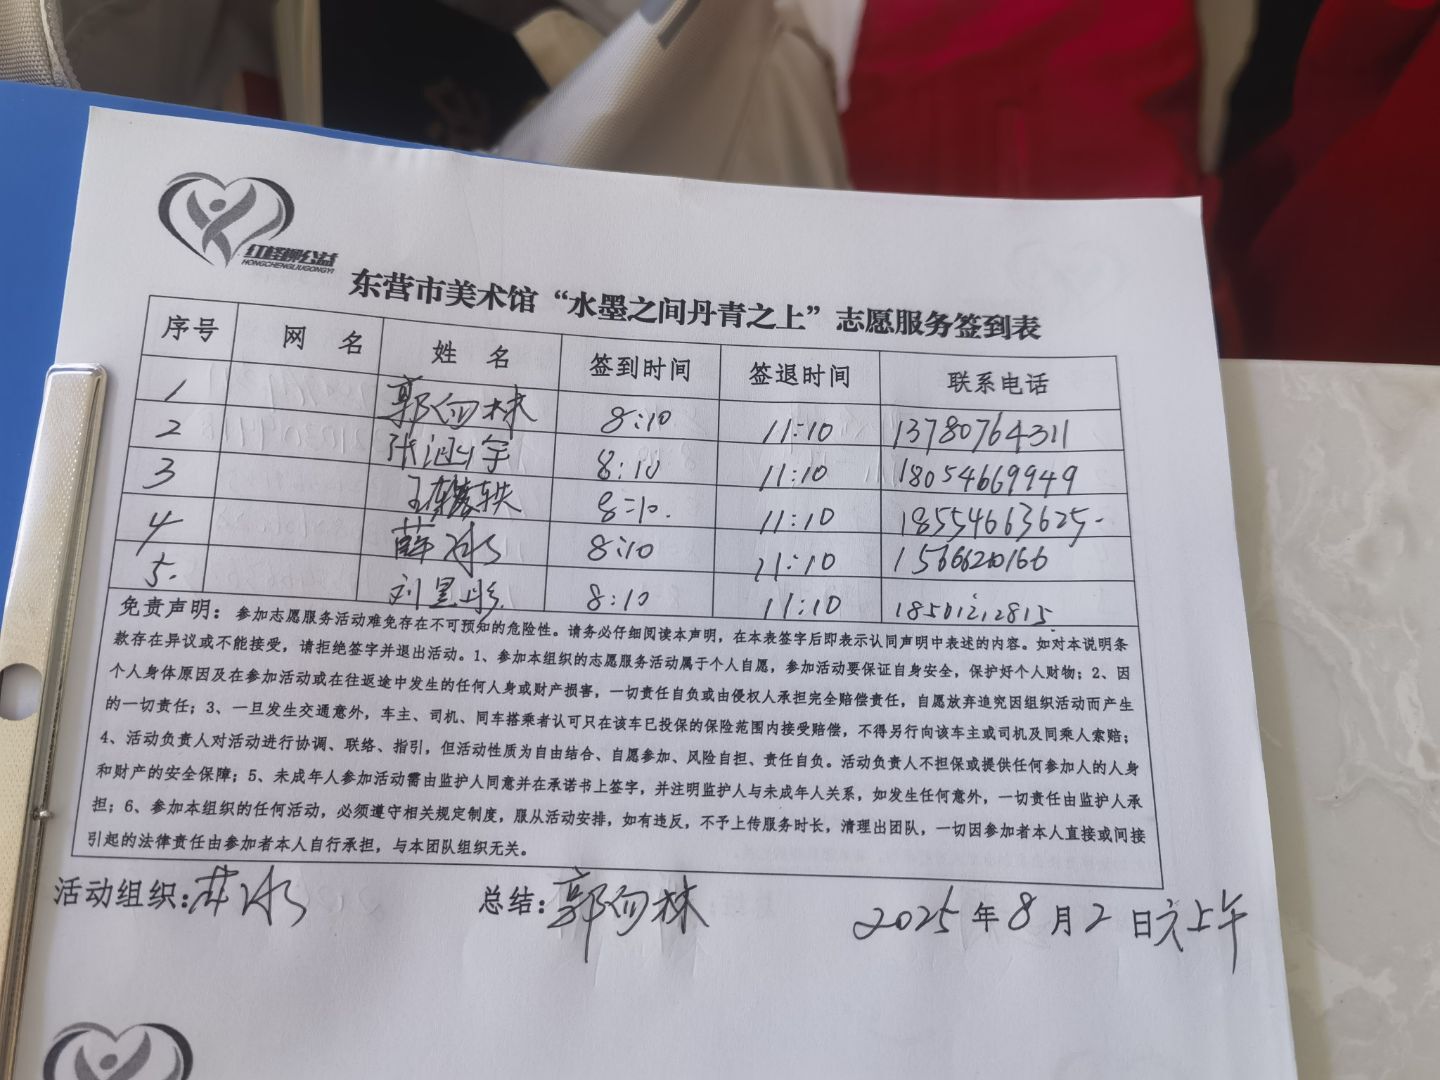 红柽柳公益
HONGCHENGLIUGONGYI
东营市美术馆“水墨之间丹青之上”志愿服务签到表
序号 网 名 姓 名 签到时间 签退时间 联系电话
1 郭向林 8:10 11:10 13780764311
2 张涵宇 8:10 11:10 18054669949
3 王 8:10. 11:10 18554663625.
4 薛冰 8:10 11:10
5. 刘昱彤 8:10 11:10 18501212815
免责声明：参加志愿服务活动难免存在不可预知的危险性。请务必仔细阅读本声明，在本表签字后即表示认同声明中表述的内容。如对本说明条
款存在异议或不能接受，请拒绝签字并退出活动。1、参加本组织的志愿服务活动属于个人自愿，参加活动要保证自身安全，保护好个人财物；2、因
个人身体原因及在参加活动或在往返途中发生的任何人身或财产损害，一切责任自负或由侵权人承担完全赔偿责任，自愿放弃追究因组织活动而产生
的一切责任；3、一旦发生交通意外，车主、司机、同车搭乘者认可只在该车已投保的保险范围内接受赔偿，不得另行向该车主或司机及同乘人索赔；
4、活动负责人对活动进行协调、联络、指引，但活动性质为自由结合、自愿参加、风险自担、责任自负。活动负责人不担保或提供任何参加人的人身
和财产的安全保障；5、未成年人参加活动需由监护人同意并在承诺书上签字，并注明监护人与未成年人关系，如发生任何意外，一切责任由监护人承
担；6、参加本组织的任何活动，必须遵守相关规定制度，服从活动安排，如有违反，不予上传服务时长，清理出团队，一切因参加者本人直接或间接
引起的法律责任由参加者本人自行承担，与本团队组织无关。
活动组织：薛冰 总结：郭向林 2025年8月2日六上午